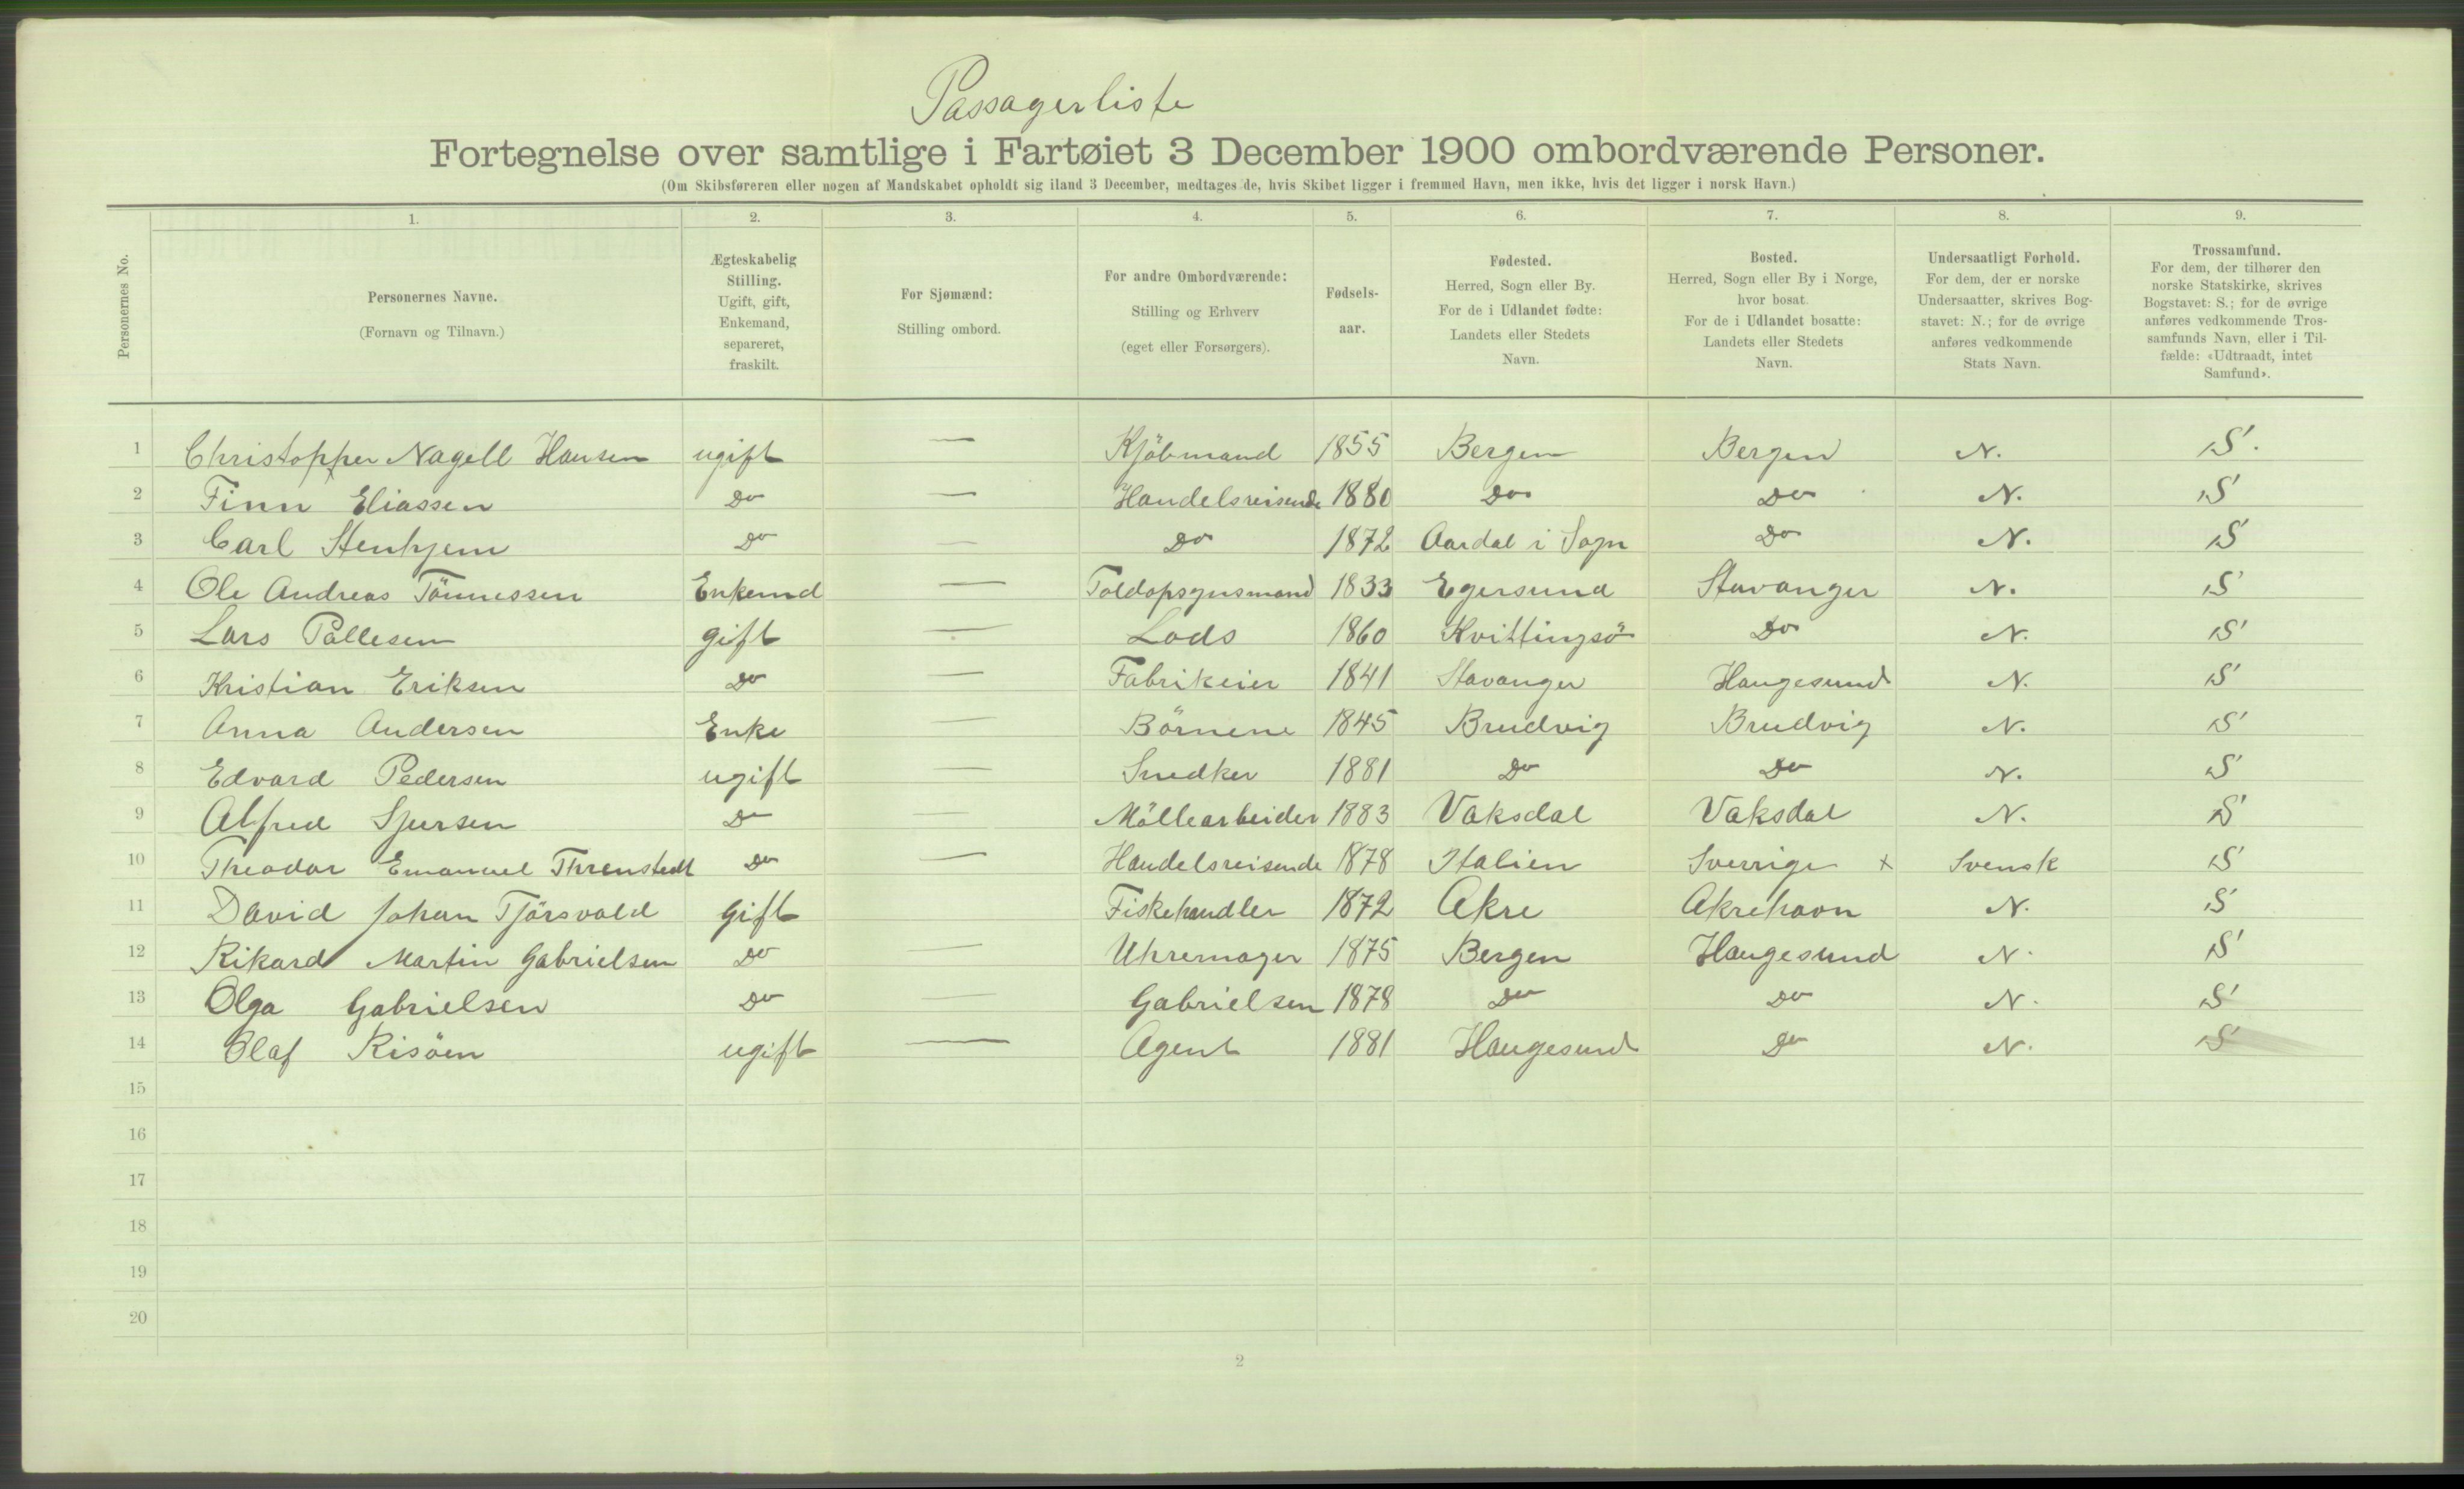 Passagerliste
Fortegnelse over samtlige i Fartøiet 3 December 1900 ombordværende Personer.
(Om Skibsføreren eller nogen af Mandskabet opholdt sig iland 3 December, medtages de, hvis Skibet ligger i fremmed Havn, men ikke, hvis det ligger i norsk Havn.)
Personernes No.
1. 2. 3. 4. 5. 6. 7. 8. 9.
Personernes Navne.
(Fornavn og Tilnavn.)
Ægteskabelig
Stilling.
Ugift, gift,
Enkemand,
separeret,
fraskilt.
For Sjømænd:
Stilling ombord.
For andre Ombordværende:
Stilling og Erhverv
(eget eller Forsørgers).
Fødsels-
aar.
Fødested.
Herred, Sogn eller By.
For de i Udlandet fødte:
Landets eller Stedets
Navn.
Bosted.
Herred, Sogn eller By i Norge,
hvor bosat.
For de i Udlandet bosatte:
Landets eller Stedets
Navn.
Undersaatligt Forhold.
For dem, der er norske
Undersaatter, skrives Bog-
stavet: N.; for de øvrige
anføres vedkommende
Stats Navn.
Trossamfund.
For dem, der tilhører den
norske Statskirke, skrives
Bogstavet: S.; for de øvrige
anføres vedkommende Tros-
samfunds Navn, eller i Til-
fælde: «Udtraadt, intet
Samfund».
1 Christopher Nagell Hansen ugift — Kjöbmand 1855 Bergen Bergen N. S.
2 Finn Eliassen Do — Handelsreisende 1880 Do Do N. S
3 Carl Stenhjem Do — Do 1872 Aardal i Sogn Do N. S
4 Ole Andreas Tönnessen Enkemd — Toldopsynsmand 1833 Egersund Stavanger N. S
5 Lars Pallesen gift — Lods 1860 Kvittingsö Do N. S
6 Kristian Eriksen Do — Fabrikeier 1841 Stavanger Haugesund N. S
7 Anna Andersen Enke — Börnene 1845 Brudvig Brudvig N. S
8 Edvard Pedersen ugift — Snedker 1881 Do Do N. S
9 Alfred Sjursen Do — Möllearbeider 1883 Vaksdal Vaksdal N. S
10 Theodor Emanuel Do — Handelsreisende 1878 Italien Sverrige x Svensk S
11 David Johan Tjörsvold Gift — Fiskehandler 1872 Akre Akrehavn N. S
12 Rikard Martin Gabrielsen Do — Uhremager 1875 Bergen Haugesund N. S
13 Olga Gabrielsen Do — Gabrielsen 1878 Do Do N. S
14 Olaf Risöen ugift — Agent 1881 Haugesund Do N. S
15
16
17
18
19
20
2